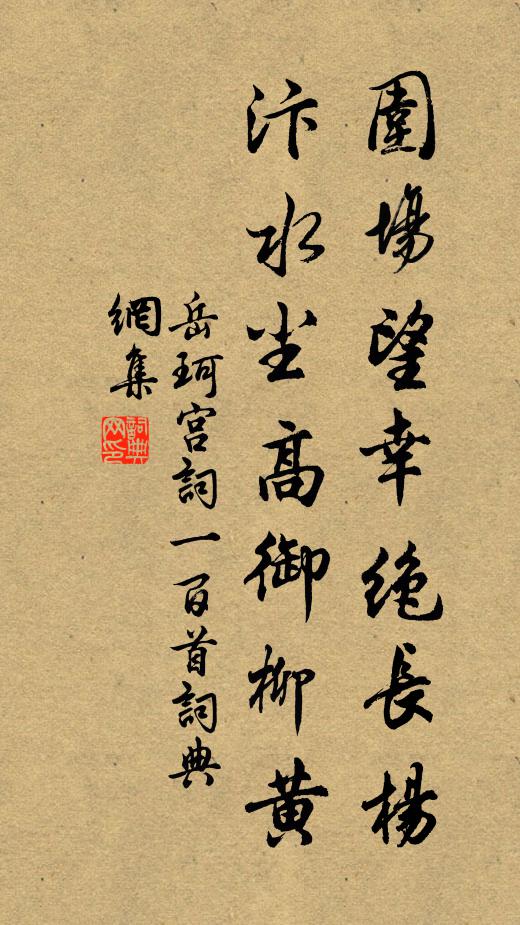 圍場望幸絶長楊
汴水尘高御柳黄
岳珂宫詞一百首詞典
網集
詞典
网印